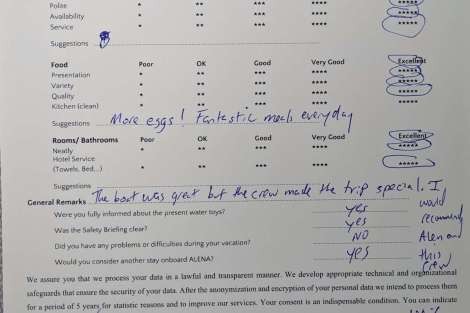 Polite * ** *** **** *****
Availability * ** *** **** *****
Service * ** *** **** *****
Suggestions
Food Poor OK Good Very Good Excellent
Presentation * ** *** **** *****
Variety * ** *** **** *****
Quality * ** *** **** *****
Kitchen (clean) * ** *** **** *****
Suggestions More eggs! Fantastic meals everyday
Rooms/ Bathrooms Poor OK Good Very Good Excellent
Neatly * ** *** **** *****
Hotel Service
(Towels, Bed...) * ** *** **** *****
Suggestions The boat was great but the crew made the trip special. I
would
recommend
Alena and
this
crew
General Remarks
Were you fully informed about the present water toys? yes
Was the Safety Briefing clear? yes
Did you have any problems or difficulties during your vacation? NO
Would you consider another stay onboard ALENA? yes
We assure you that we process your data in a lawful and transparent manner. We develop appropriate technical and organizational
safeguards that ensure the security of your data. After the anonymization and encryption of your personal data we intend to process them
for a period of 5 years for statistic reasons and to improve our services. Your consent is an indispensable condition. You can indicate